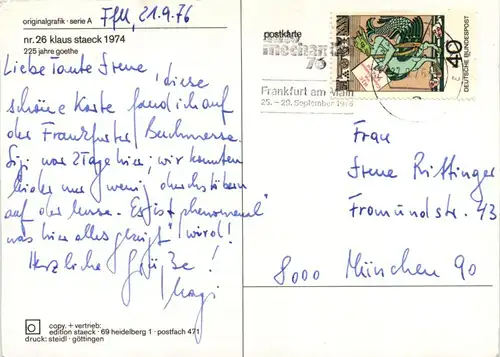 originalgrafik · serie A
Ffm, 21.9.76
nr. 26 klaus staeck 1974
225 jahre goethe
Liebe Tante Irene, diese
schöne Karte fand ich auf
der Frankfurter Buchmesse.
Sigi war 2 Tage hier; wir konnten
leider nur wenig durchstöbern
auf der Messe. Es ist "phenomenal"
was hier alles gezeigt wird!
Herzliche Grüße!
copy. + vertrieb:
edition staeck · 69 heidelberg 1 · postfach 471
druck: steidl · göttingen
postkarte
mechan
76
Frankfurt am Main
25. – 29. September 1976
40
DEUTSCHE BUNDESPOST
Frau
Irene Rittinger
Fromundstr. 43
8000 München 90